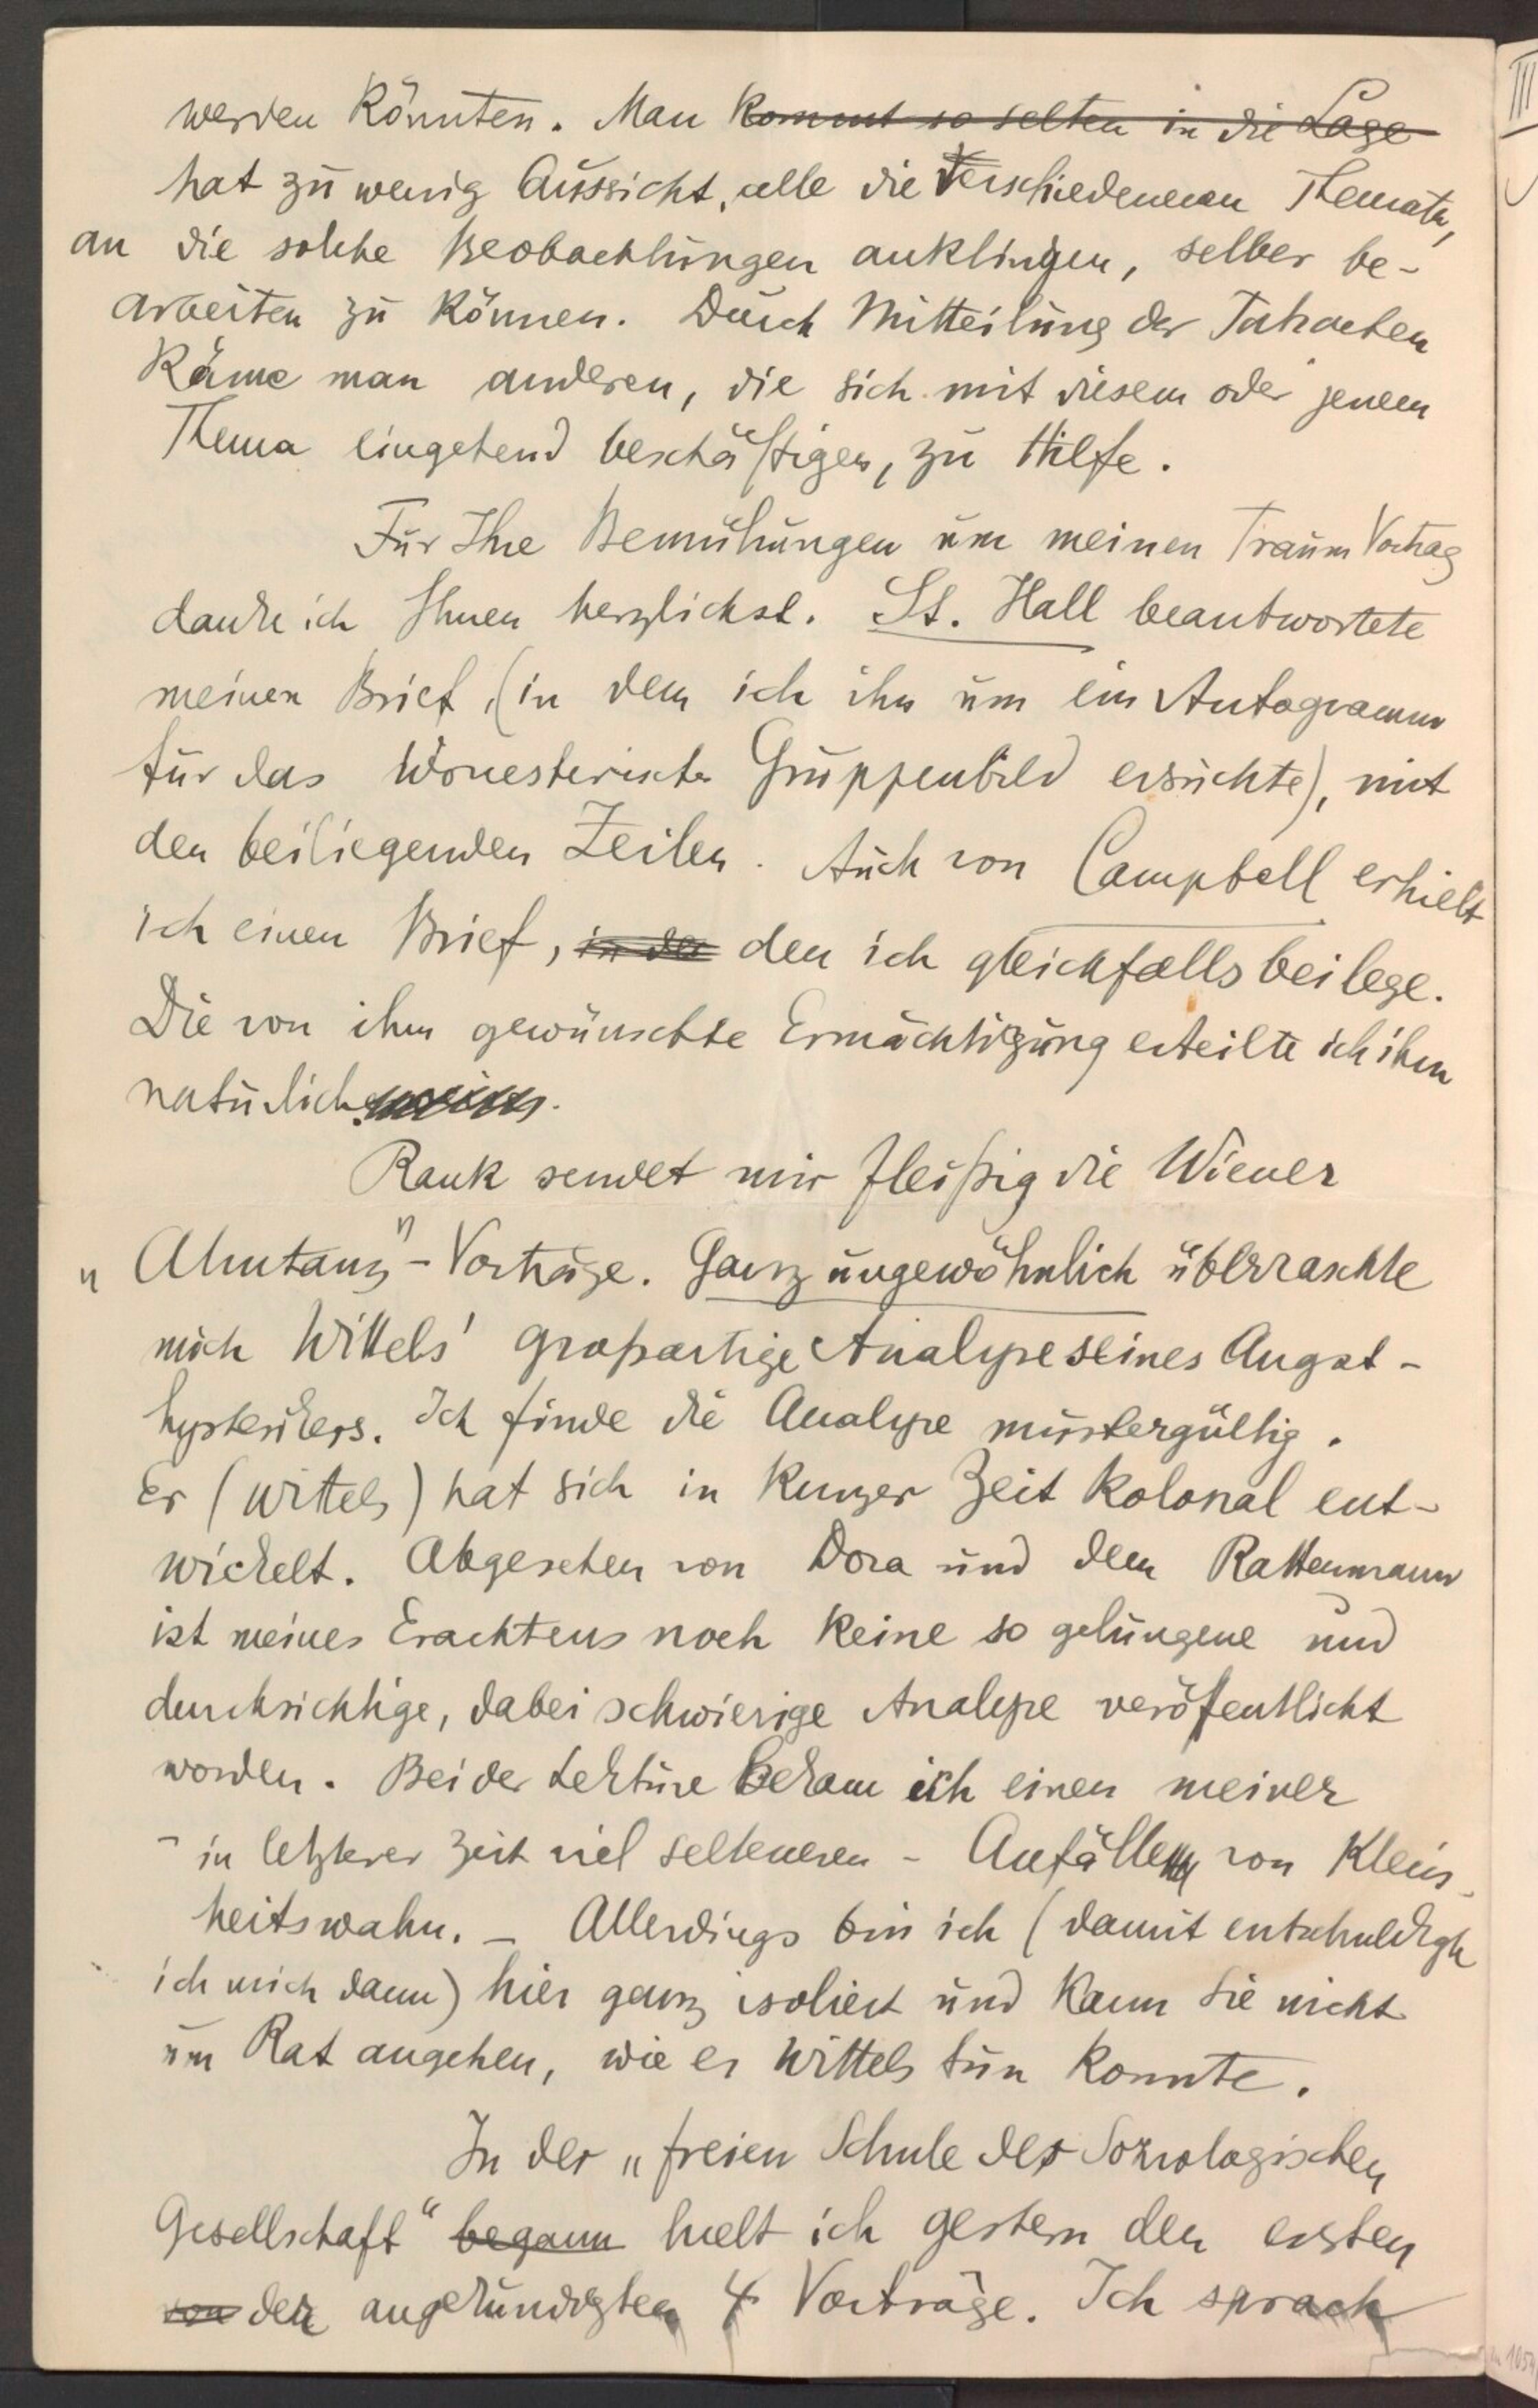 werden können. Man kommt so selten in die Lage
hat zu wenig Aussicht, alle die verschiedenen Themata,
an die solche Beobachtungen anklingen, selber be-
arbeiten zu können. Durch Mitteilung der Tatsachen
käme man anderen, die sich mit diesem oder jenem
Thema eingehend beschäftigen, zu Hilfe.
Für Ihre Bemühungen um meinen Traum Vortrag
danke ich Ihnen herzlichst. St. Hall beantwortete
meinen Brief, (in dem ich ihn um ein Autogramm
für das Worcesterische Gruppenbild ersuchte), mit
den beiliegenden Zeilen. Auch von Campbell erhielt
ich einen Brief, in der den ich gleichfalls beilege.
Die von ihm gewünschte Ermächtigung erteilte ich ihm
natürlich.
Rank sendet mir fleißig die Wiener
"-Vorträge. Ganz ungewöhnlich überraschte
mich Wittels' großartige Analyse seines Angst-
hysterikers. Ich finde die Analyse mustergültig.
Er (Wittels) hat sich in kurzer Zeit kolossal ent-
wickelt. Abgesehen von Dora und dem Rattenmann
ist meines Erachtens noch keine so gelungene und
durchsichtige, dabei schwierige Analyse veröffentlicht
worden. Bei der Lektüre bekam ich einen meiner
- in letzterer Zeit viel selteneren - Anfälle von Klein-
heitswahn. - Allerdings bin ich (damit entschuldigte
ich mich dann) hier ganz isoliert und kann Sie nicht
um Rat angehen, wie es Wittels tun konnte.
In der "freien Schule der Soziologischen
Gesellschaft" begann hielt ich gestern den ersten
von der angekündigten 4 Vorträge. Ich sprach
III